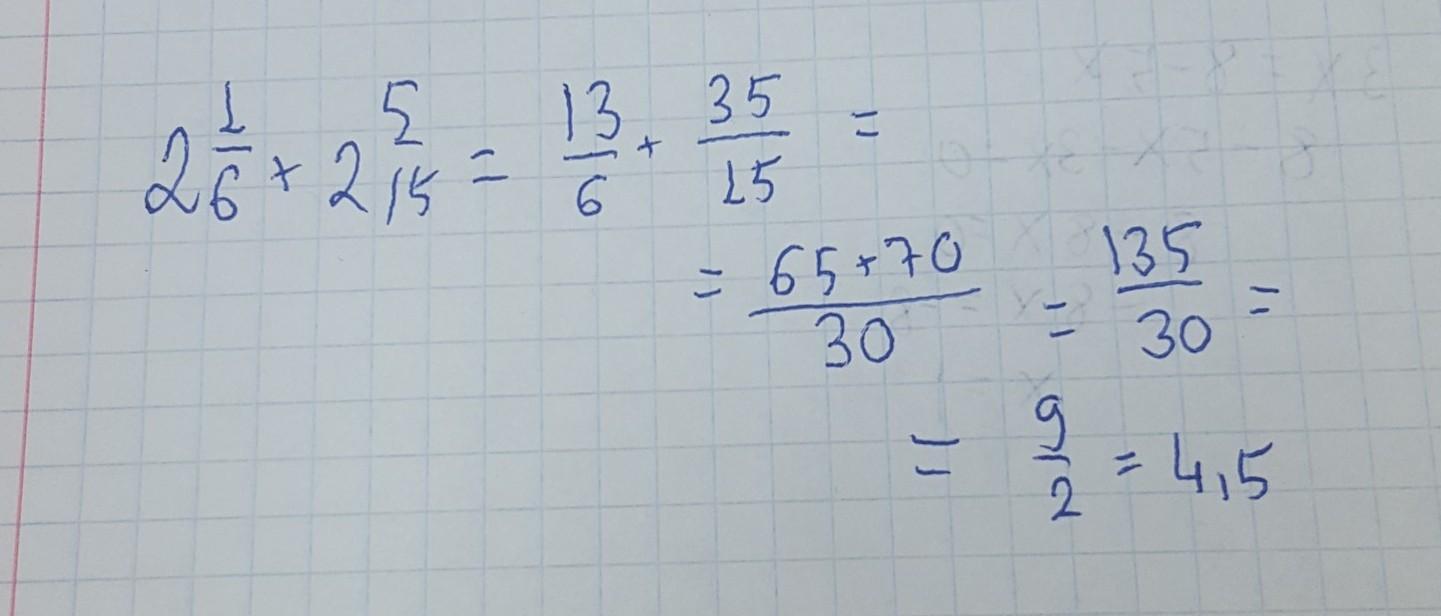 2 1/6 + 2 5/15 = 13/6 + 35/15 =
= 65+70/30 = 135/30 =
= 9/2 = 4,5